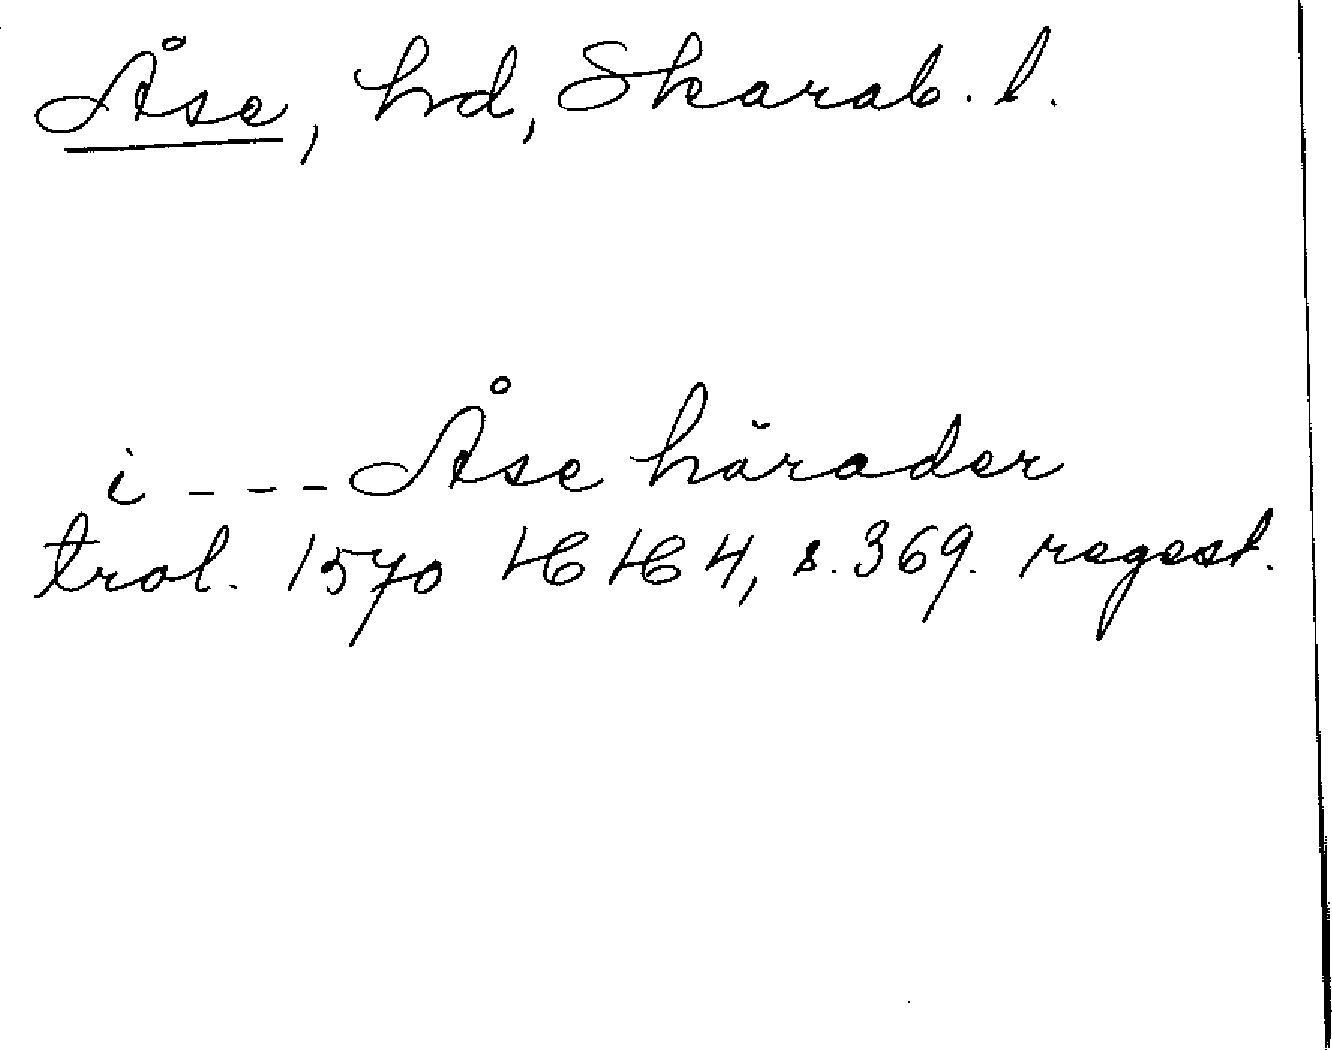 Åse, hd, Skarab. l.
i - - - Åse härader
trol. 1570 HH 4, s. 369. regest.